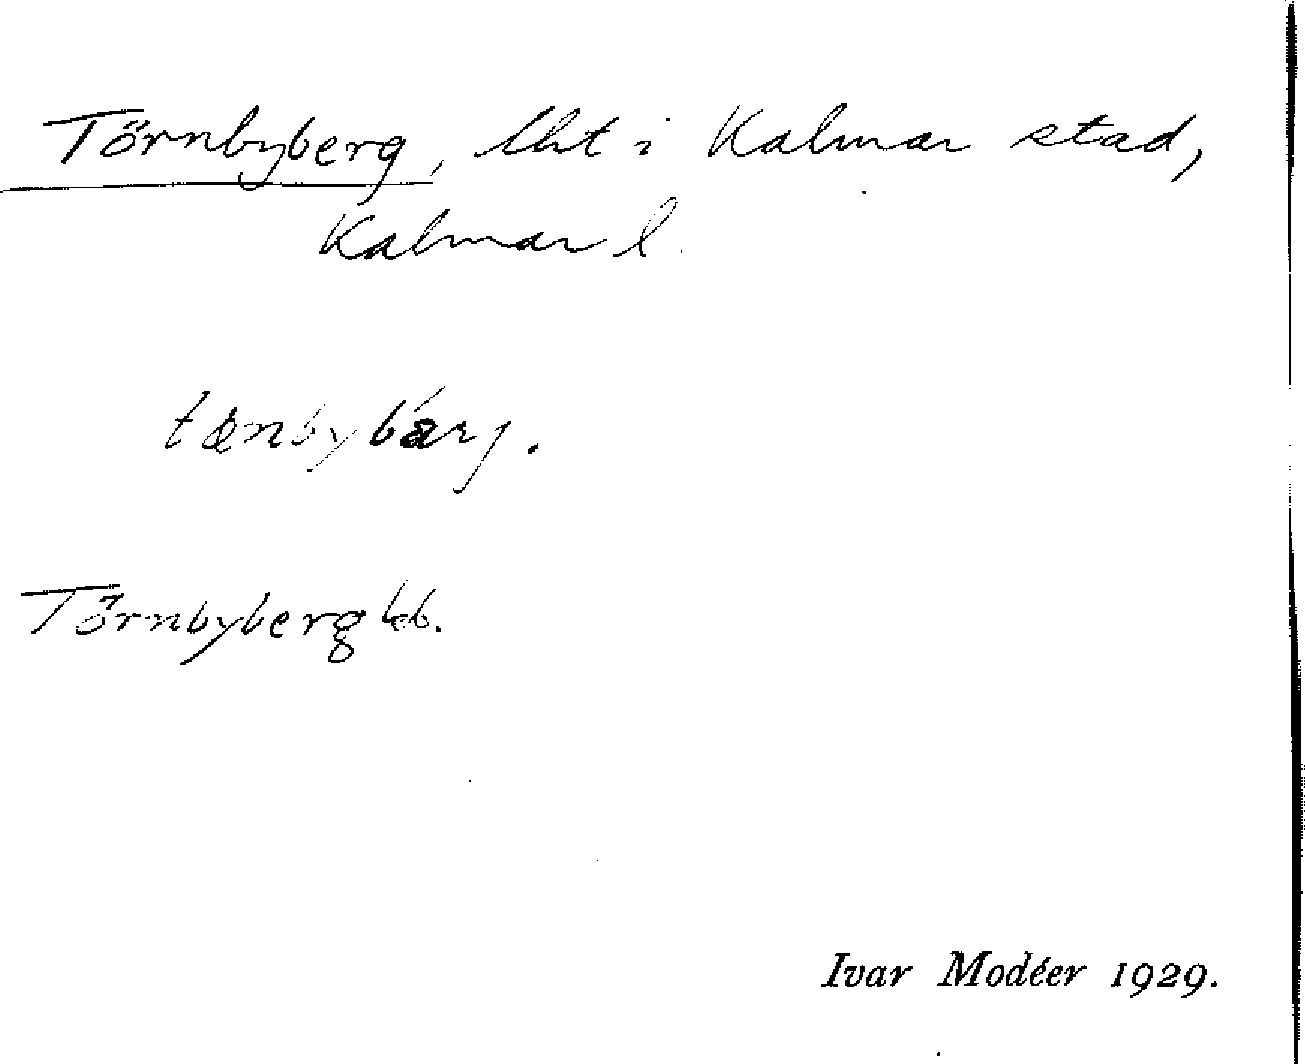 Törnbyberg, lht i Kalmar stad,
Kalmar l.
tœnbybárj.
Törnbyberg
Ivar Modéer 1929.